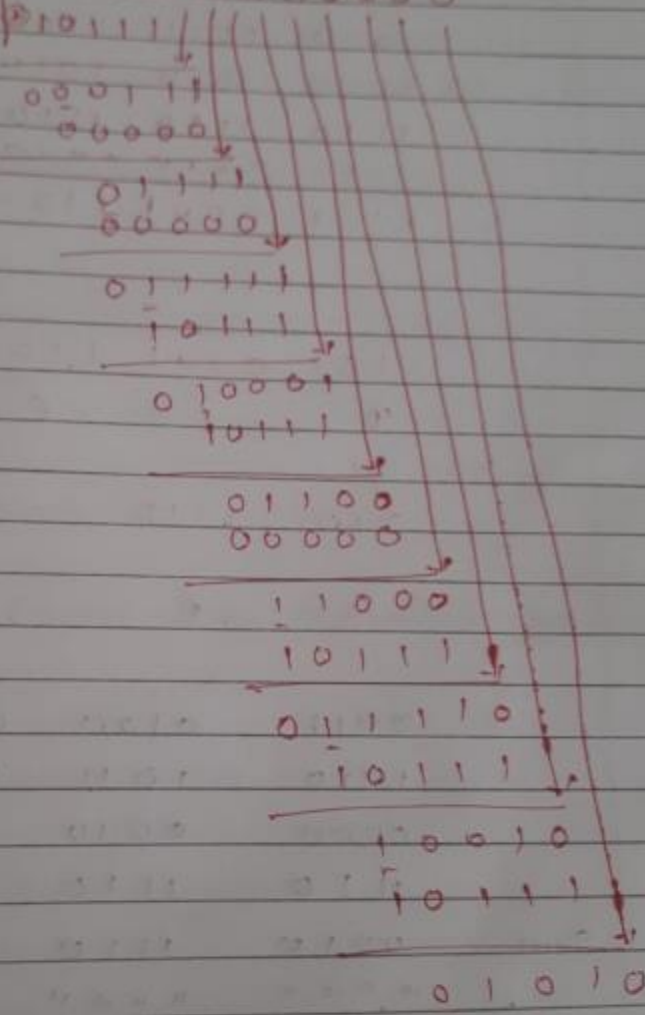 1 0 1 1 1
0 0 0 1 1 1
0 0 0 0 0
0 1 1 1 1
0 0 0 0 0
0 1 1 1 1 1
1 0 1 1 1
0 1 0 0 0 1
1 0 1 1 1
0 1 1 0 0
0 0 0 0 0
1 1 0 0 0
1 0 1 1 1
0 1 1 1 1 0
1 0 1 1 1
1 0 0 1 0
1 0 1 1 1
0 1 0 1 0